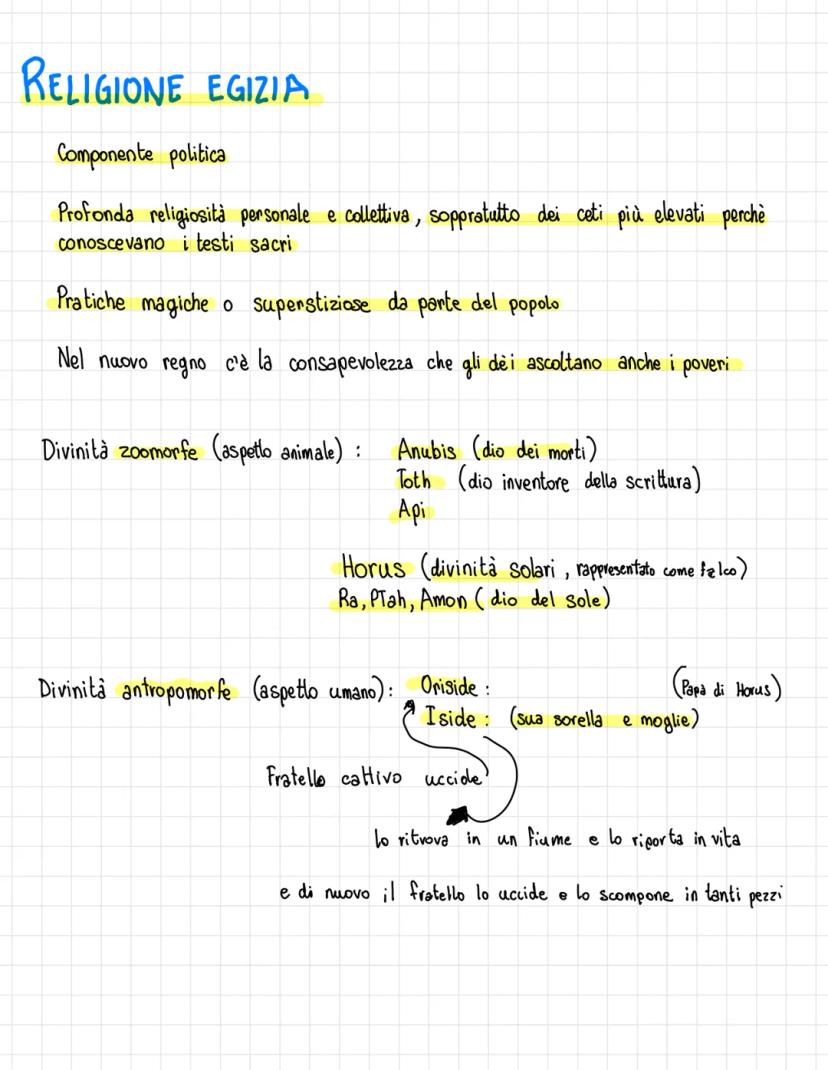 RELIGIONE EGIZIA
Componente politica
Profonda religiosità personale e collettiva, sopratutto dei ceti più elevati perchè
conoscevano i testi sacri
Pratiche magiche o superstiziose da parte del popolo
Nel nuovo regno c'è la consapevolezza che gli dèi ascoltano anche i poveri
Divinità zoomorfe (aspetto animale) : Anubis (dio dei morti)
Toth (dio inventore della scrittura)
Api
Horus (divinità solari, rappresentato come falco)
Ra, PTah, Amon ( dio del sole)
Divinità antropomorfe (aspetto umano): Oriside : (Papà di Horus)
Iside : (sua sorella e moglie)
Fratello cattivo uccide
lo ritrova in un fiume e lo riporta in vita
e di nuovo il fratello lo uccide e lo scompone in tanti pezzi